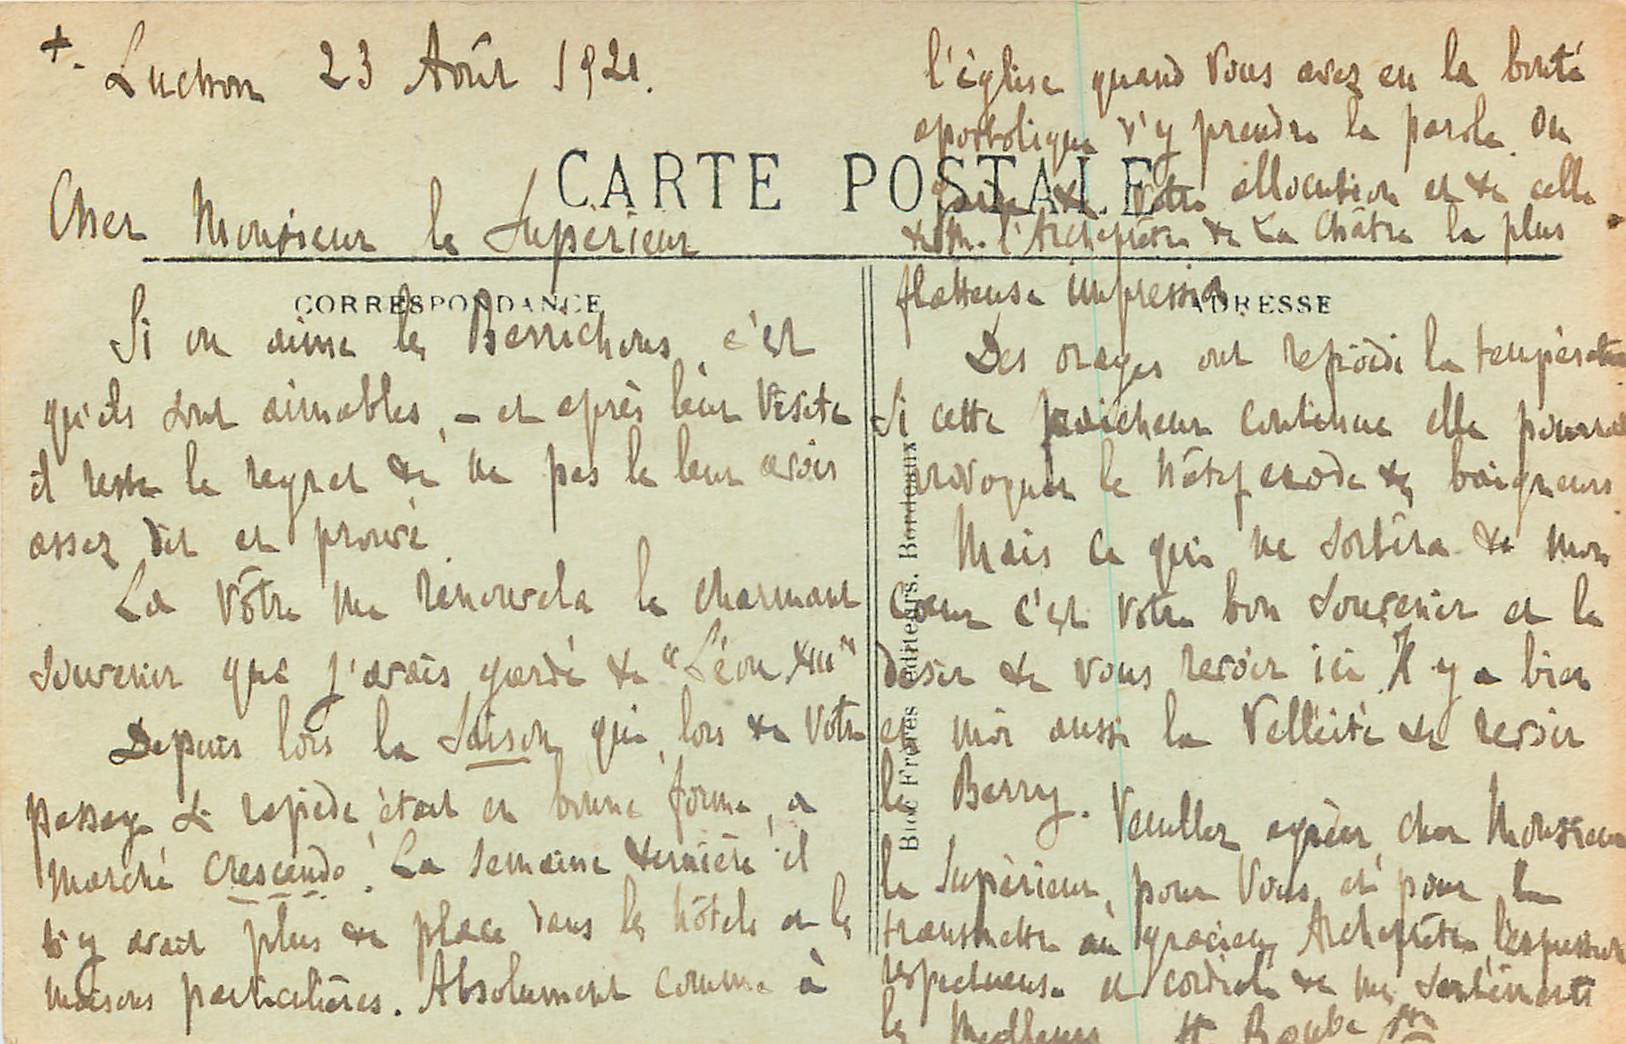 +. Luchon 23 Août 1921.
CARTE POSTALE
Cher Monsieur le Supérieur
CORRESPONDANCE
Si on aime les Berrichons, c'est
qu'ils sont aimables, - et après leur visite
il reste le regret de ne pas le leur avoir
assez dit et prouvé.
La vôtre me renouvela le charmant
souvenir que j'avais gardé de "Léon XIII"
Depuis lors la Saison, qui, lors de votre
passage si rapide, était en bonne forme, a
marché crescendo. La semaine dernière il
n'y avait plus de place dans les hôtels et les
maisons particulières. Absolument comme à
l'église quand vous avez eu la bonté
apostolique d'y prendre la parole. On
garde de votre allocution et de celle
de M. l'Archiprêtre de La Châtre la plus
flatteuse impression.
ADRESSE
Des orages ont refroidi la température
Si cette fraîcheur continue elle pourrait
provoquer le hâtif exode des baigneurs
Mais ce qui ne sortira de mon
coeur c'est votre bon souvenir et le
désir de vous revoir ici. Il y a bien
en moi aussi la velléité de revoir
le Berry. Veuillez agréer, cher Monsieur
le Supérieur, pour vous et pour le
transmettre au gracieux Archiprêtre, l'expression
respectueuse et cordiale de mes sentiments
les meilleurs
Bloc Frères, éditeurs, Bordeaux